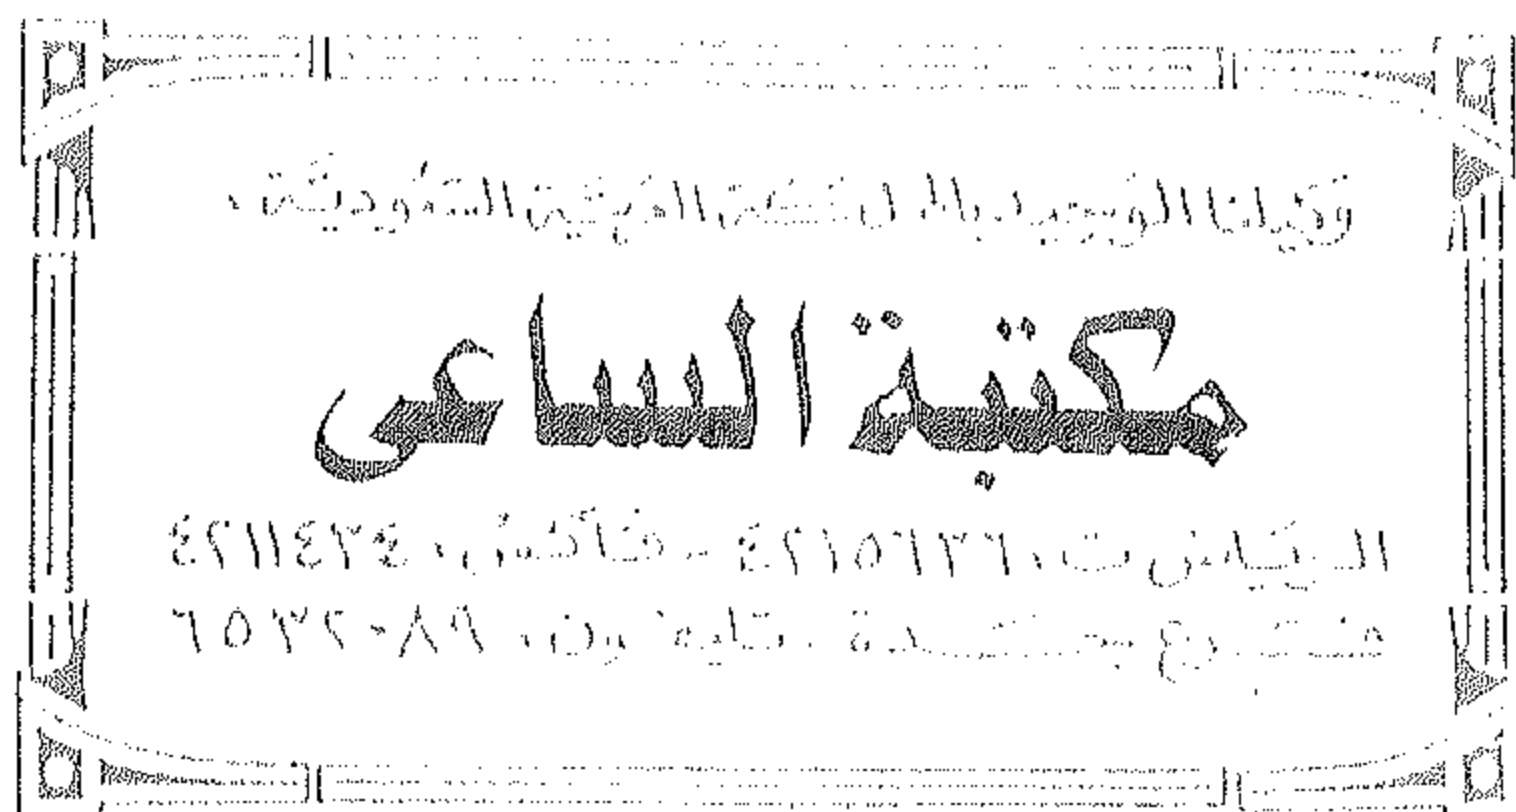 وكيلنا الوحيد بالمملكة العربية السعودية :
مكتبة الساعى
الرياض ت : ٤٢١٥٦٣٦ - فاكس : ٤٢١١٤٣٤
فرع جدة : تليفون : ٦٥٣٢٠٨٩